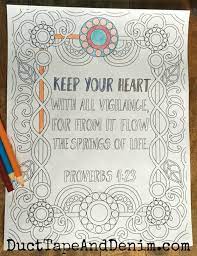 KEEP YOUR HEART
WITH ALL VIGILANCE,
FOR FROM IT FLOW
THE SPRINGS OF LIFE.
PROVERBS 4:23
DuctTapeAndDenim.com